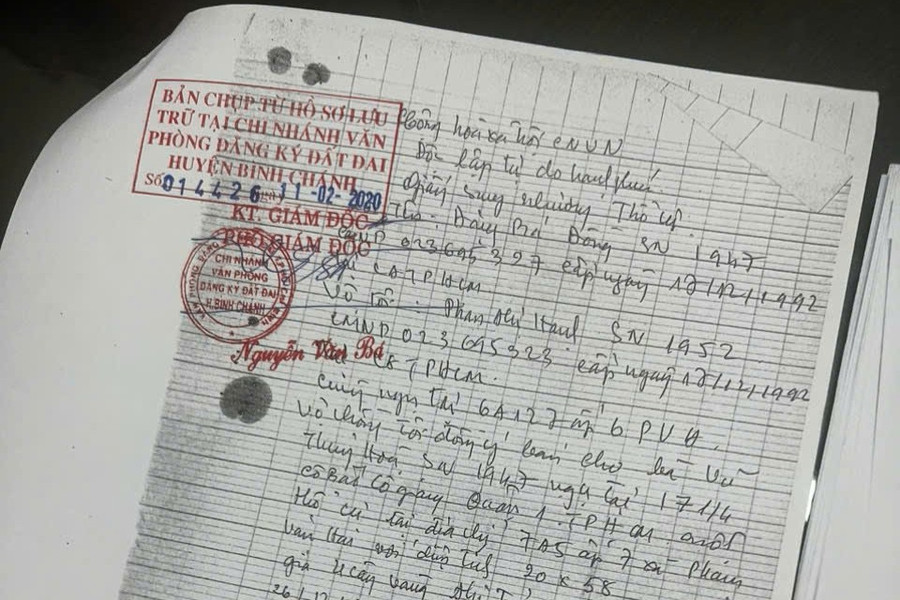 BẢN CHỤP TỪ HỒ SƠ LƯU
TRỮ TẠI CHI NHÁNH VĂN
PHÒNG ĐĂNG KÝ ĐẤT ĐAI
HUYỆN BÌNH CHÁNH
Số 014426 11-02-2020
KT. GIÁM ĐỐC
PHÓ GIÁM ĐỐC
CHI NHÁNH
VĂN PHÒNG
ĐĂNG KÝ ĐẤT ĐAI
H.BÌNH CHÁNH
Nguyễn Văn Bá
hoà xã hội CNVN
Độc lập tự do hạnh phúc
Giấy sang nhượng Thổ cư
Đặng Bá Đông SN 1947
CMND 023695327 cấp ngày 17/12/1992
CATPHCM
Vợ tôi: Phan Thị SN 1952
CMND 023695323 cấp ngày 17/12/1992
CATPHCM.
cùng ngụ tại 6A127 ấp 6 PVH.
Vợ chồng tôi đồng ý bán cho bà Vũ
Thuý Hoà SN 1947 ngụ tại 171/4
Cô Bắc Cô Giang Quận 1 TPHCM
ở tại địa chỉ 7A5 ấp 7 xã Phạm
Văn Hai với diện tích 20 x 58
giá cây vàng
26/12